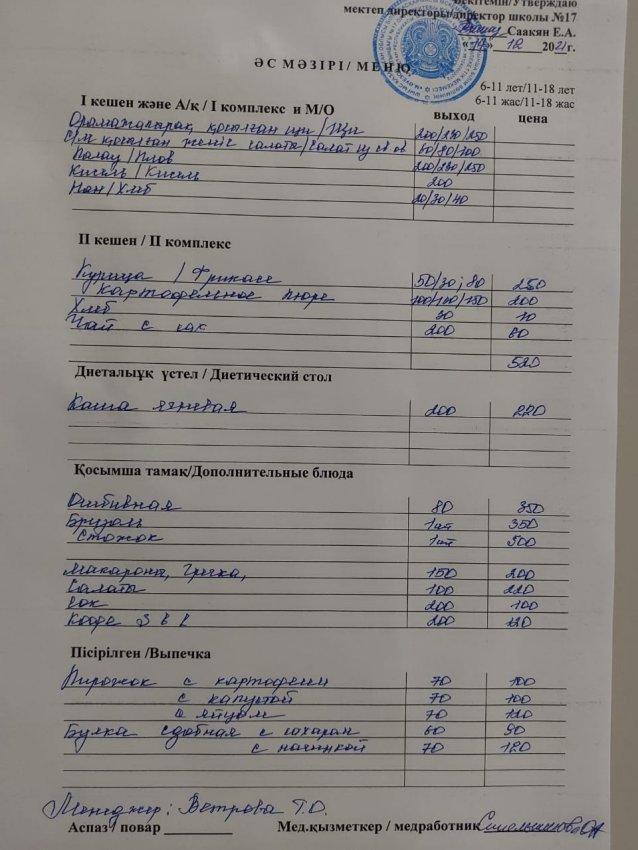 Бекітемін/Утверждаю
мектеп директоры/директор школы №17
Саакян Е.А.
«19» 12 2021г.
ӘС МӘЗІРІ / МЕНЮ
6-11 лет/11-18 лет
6-11 жас/11-18 жас
І кешен және А/қ / І комплекс и М/О выход цена
қосылған щи / Щи 200/230/250
салаты/Салат из св ов 60/90/100
Палау / Плов 200/230/250
Кисель / Кисель 200
Нан / Хлеб 20/30/40
ІІ кешен / ІІ комплекс
Курица / Фрикасе 50/30; 80 250
Картофельное пюре 100/140/150 200
Хлеб 30 10
Чай с сах 200 60
520
Диеталыұқ үстел / Диетический стол
Каша ячневая 200 220
Қосымша тамақ/Дополнительные блюда
Отбивная 80 350
Бризоль 1шт 350
Стожок 1шт 300
Макароны, Гречка, 150 200
Салаты 100 220
Сок 200 100
Кофе 3 в 1 200 120
Пісірілген /Выпечка
Пирожок с картофели 70 100
с капустой 70 100
с яйцом 70 110
Булка сдобная с сахаром 60 90
с начинкой 70 120
Менеджер: Ветрова Т.О.
Аспаз / повар
Мед.қызметкер / медработник